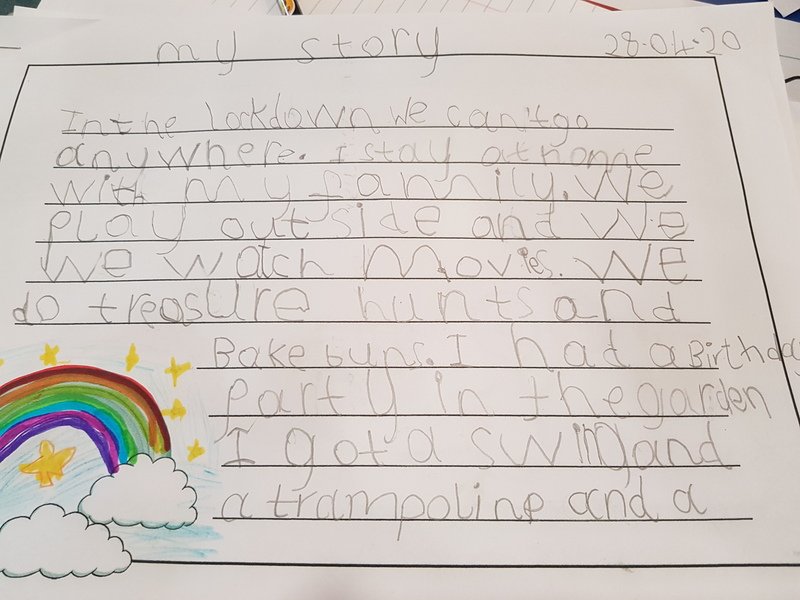 my story 28.04.20
In the lockdown we can't go
anywhere. I stay at home
with my family. We
play out side and we
we watch movies. We
do treasure hunts and
Bake buns. I had a Birthday
party in the garden
I got a swing and
a trampoline and a